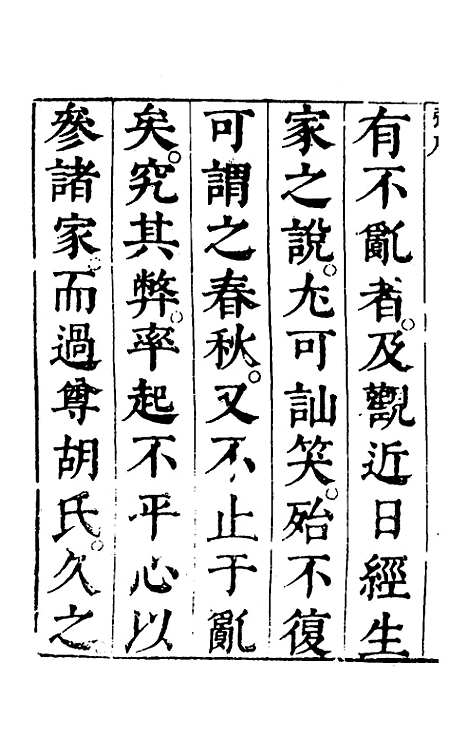 有不亂者。及觀近日經生
家之說。尤可訕笑。殆不復
可謂之春秋。又不止于亂
矣。究其弊。率起不平心以
參諸家。而過尊胡氏。久之